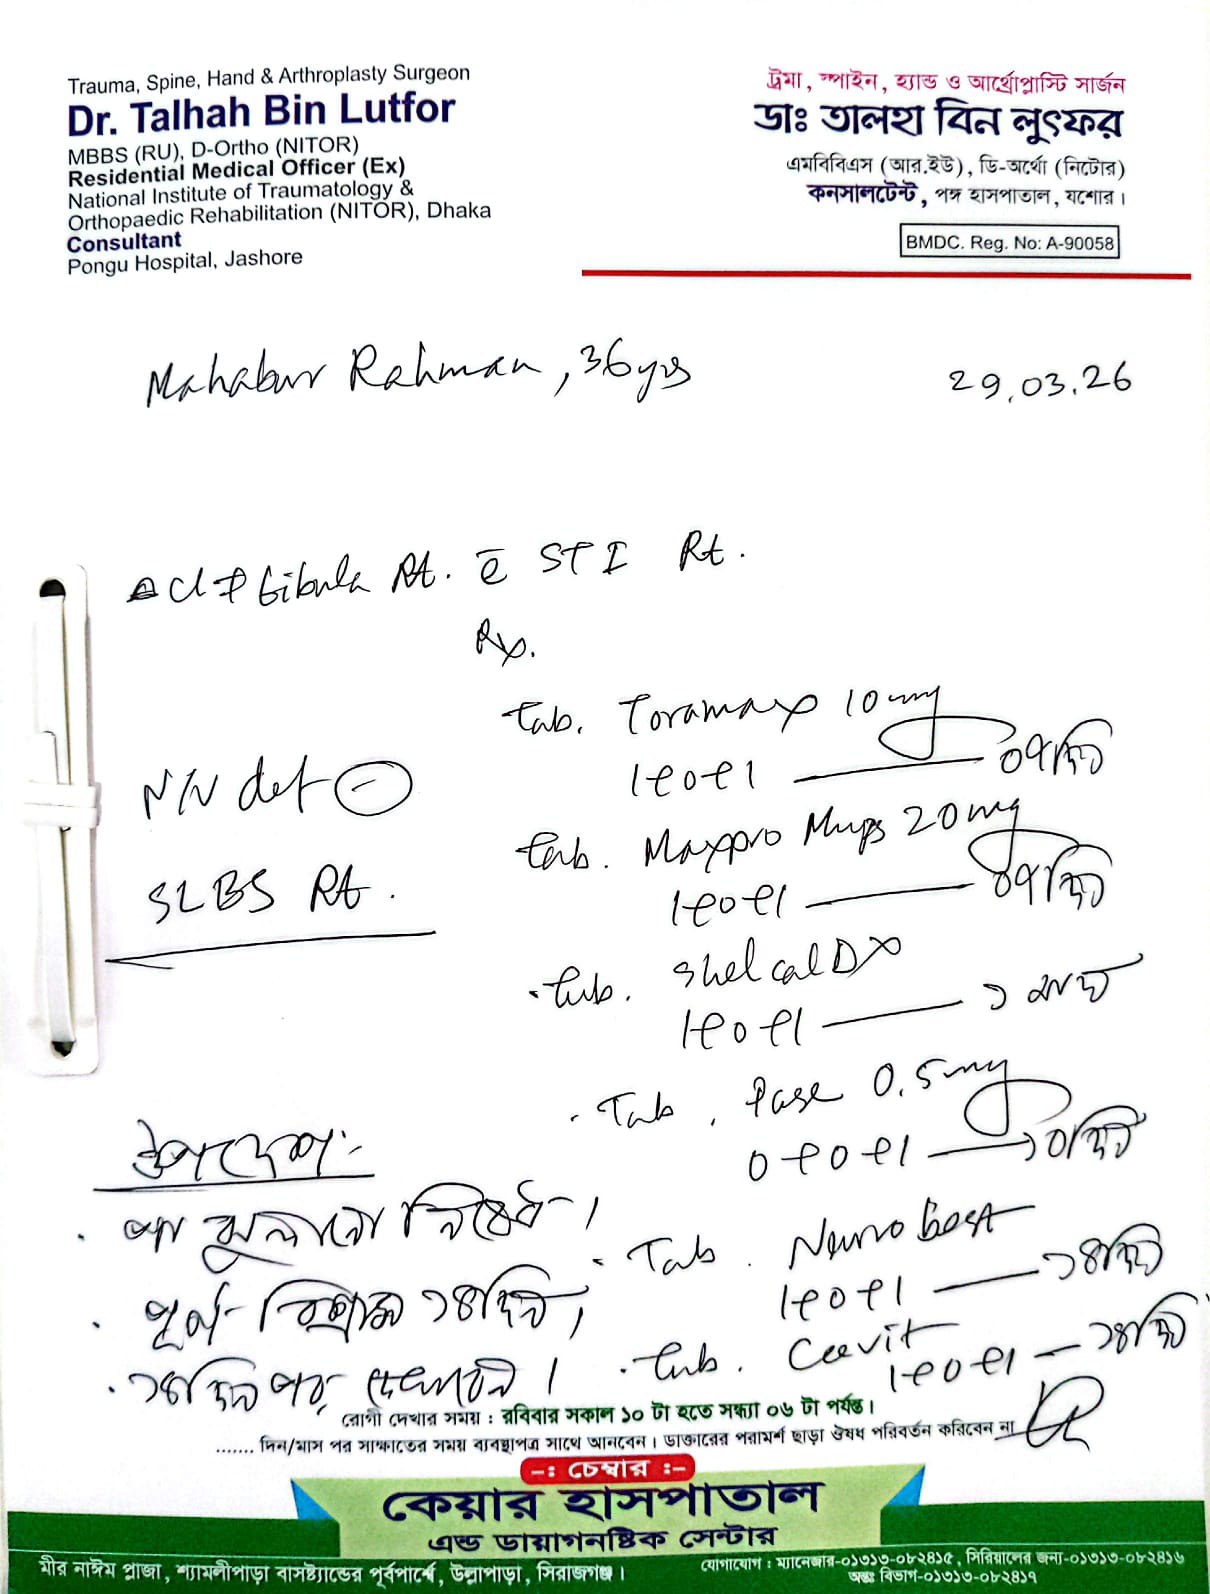 Trauma, Spine, Hand & Arthroplasty Surgeon
Dr. Talhah Bin Lutfor
MBBS (RU), D-Ortho (NITOR)
Residential Medical Officer (Ex)
National Institute of Traumatology &
Orthopaedic Rehabilitation (NITOR), Dhaka
Consultant
Pongu Hospital, Jashore
ট্রমা, স্পাইন, হ্যান্ড ও আর্থ্রোপ্লাস্টি সার্জন
ডাঃ তালহা বিন লুৎফর
এমবিবিএস (আর.ইউ), ডি-অর্থো (নিটোর)
কনসালটেন্ট, পঙ্গ হাসপাতাল, যশোর।
BMDC. Reg. No: A-90058
Mahabur Rahman, 36 yrs
29.03.26
tibula Rt. c̄ STI Rt.
Rx.
N/V def ⊖
SLBS Rt.
Tab. Toramax 10 mg
1+0+1 — ০৭ দিন
Tab. Maxpro Mups 20 mg
1+0+1 — ০৭ দিন
Tab. Shelcal DX
1+0+1 — ১ মাস
Tab. Pase 0.5 mg
0+0+1 — ১০ দিন
Tab. Neurobest
1+0+1 — ১৪ দিন
Tab. Ceevit
1+0+1 — ১৪ দিন
উপদেশ:-
পা ঝুলানো নিষেধ।
পূর্ণ বিশ্রাম ১৪ দিন।
১৪ দিন পর দেখাবেন।
রোগী দেখার সময় : রবিবার সকাল ১০ টা হতে সন্ধ্যা ০৬ টা পর্যন্ত।
....... দিন/মাস পর সাক্ষাতের সময় ব্যবস্থাপত্র সাথে আনবেন। ডাক্তারের পরামর্শ ছাড়া ঔষধ পরিবর্তন করিবেন না
-: চেম্বার :-
কেয়ার হাসপাতাল
এন্ড ডায়াগনষ্টিক সেন্টার
মীর নাঈম প্লাজা, শ্যামলীপাড়া বাসষ্ট্যান্ডের পূর্বপার্শ্বে, উল্লাপাড়া, সিরাজগঞ্জ।
যোগাযোগ : ম্যানেজার-০১৩১৩-০৮২৪১৫, সিরিয়ালের জন্য-০১৩১৩-০৮২৪১৬
অন্তঃ বিভাগ-০১৩১৩-০৮২৪১৭